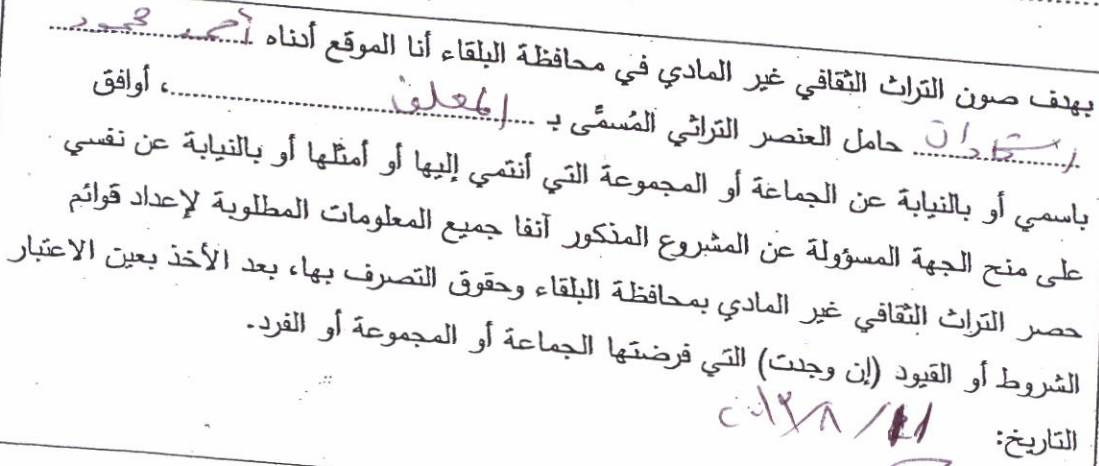 بهدف صون التراث الثقافي غير المادي في محافظة البلقاء أنا الموقع أدناه أحمد محمود
حامل العنصر التراثي المُسمَّى بـ المعلق، أوافق
باسمي أو بالنيابة عن الجماعة أو المجموعة التي أنتمي إليها أو أمثلها أو بالنيابة عن نفسي
على منح الجهة المسؤولة عن المشروع المذكور آنفا جميع المعلومات المطلوبة لإعداد قوائم
حصر التراث الثقافي غير المادي بمحافظة البلقاء وحقوق التصرف بها، بعد الأخذ بعين الاعتبار
الشروط أو القيود (إن وجدت) التي فرضتها الجماعة أو المجموعة أو الفرد.
التاريخ: